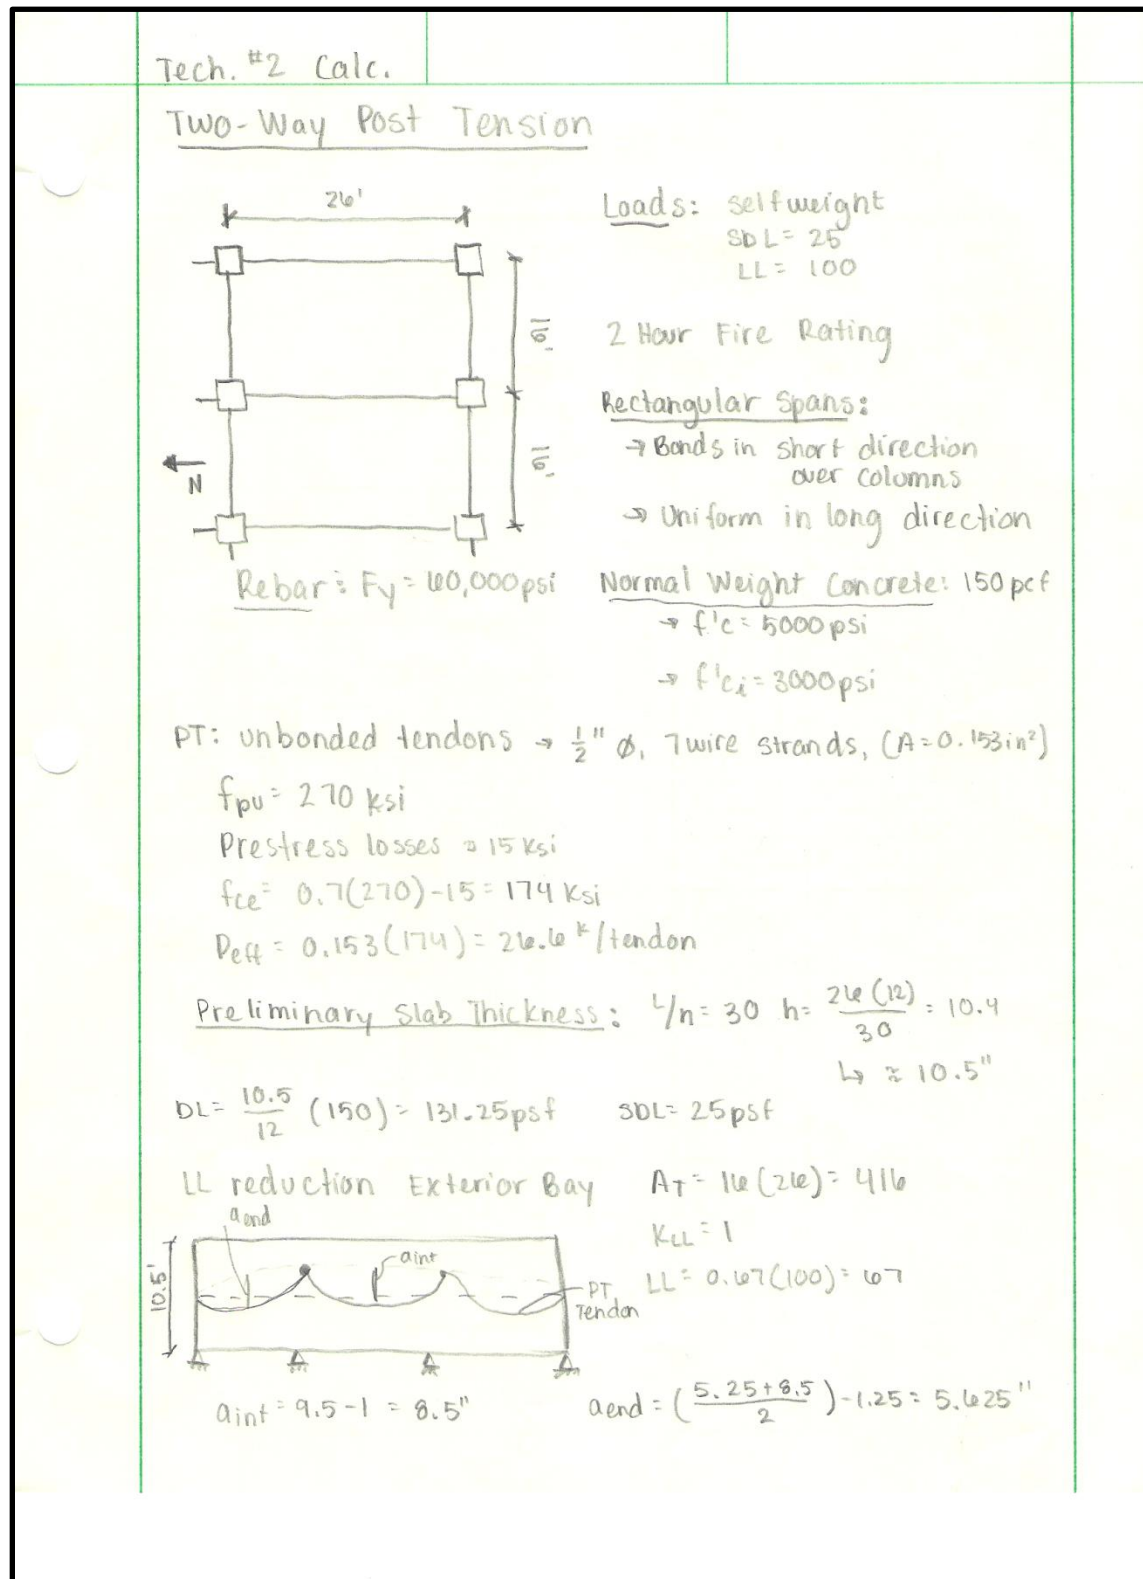 Tech. #2 Calc.
Two-Way Post Tension
26'
Loads: selfweight
SDL = 25
LL = 100
16'
2 Hour Fire Rating
Rectangular Spans:
→ Bands in short direction
over columns
16'
N
→ Uniform in long direction
Rebar: Fy = 60,000psi
Normal Weight Concrete: 150 pcf
→ f'c = 5000 psi
→ f'ci = 3000 psi
PT: unbonded tendons → 1/2" ø, 7 wire strands, (A = 0.153 in²)
fpu = 270 ksi
Prestress losses = 15 ksi
fce = 0.7(270)-15 = 174 ksi
Peff = 0.153(174) = 26.6 k/tendon
Preliminary Slab Thickness: L/h = 30 h = 26(12)/30 = 10.4
↳ ≈ 10.5"
DL = 10.5/12 (150) = 131.25psf SDL = 25psf
LL reduction Exterior Bay AT = 16(26) = 416
KLL = 1
LL = 0.67(100) = 67
aend
aint
10.5'
PT
Tendon
aint = 9.5-1 = 8.5" aend = (5.25+8.5/2)-1.25 = 5.625"